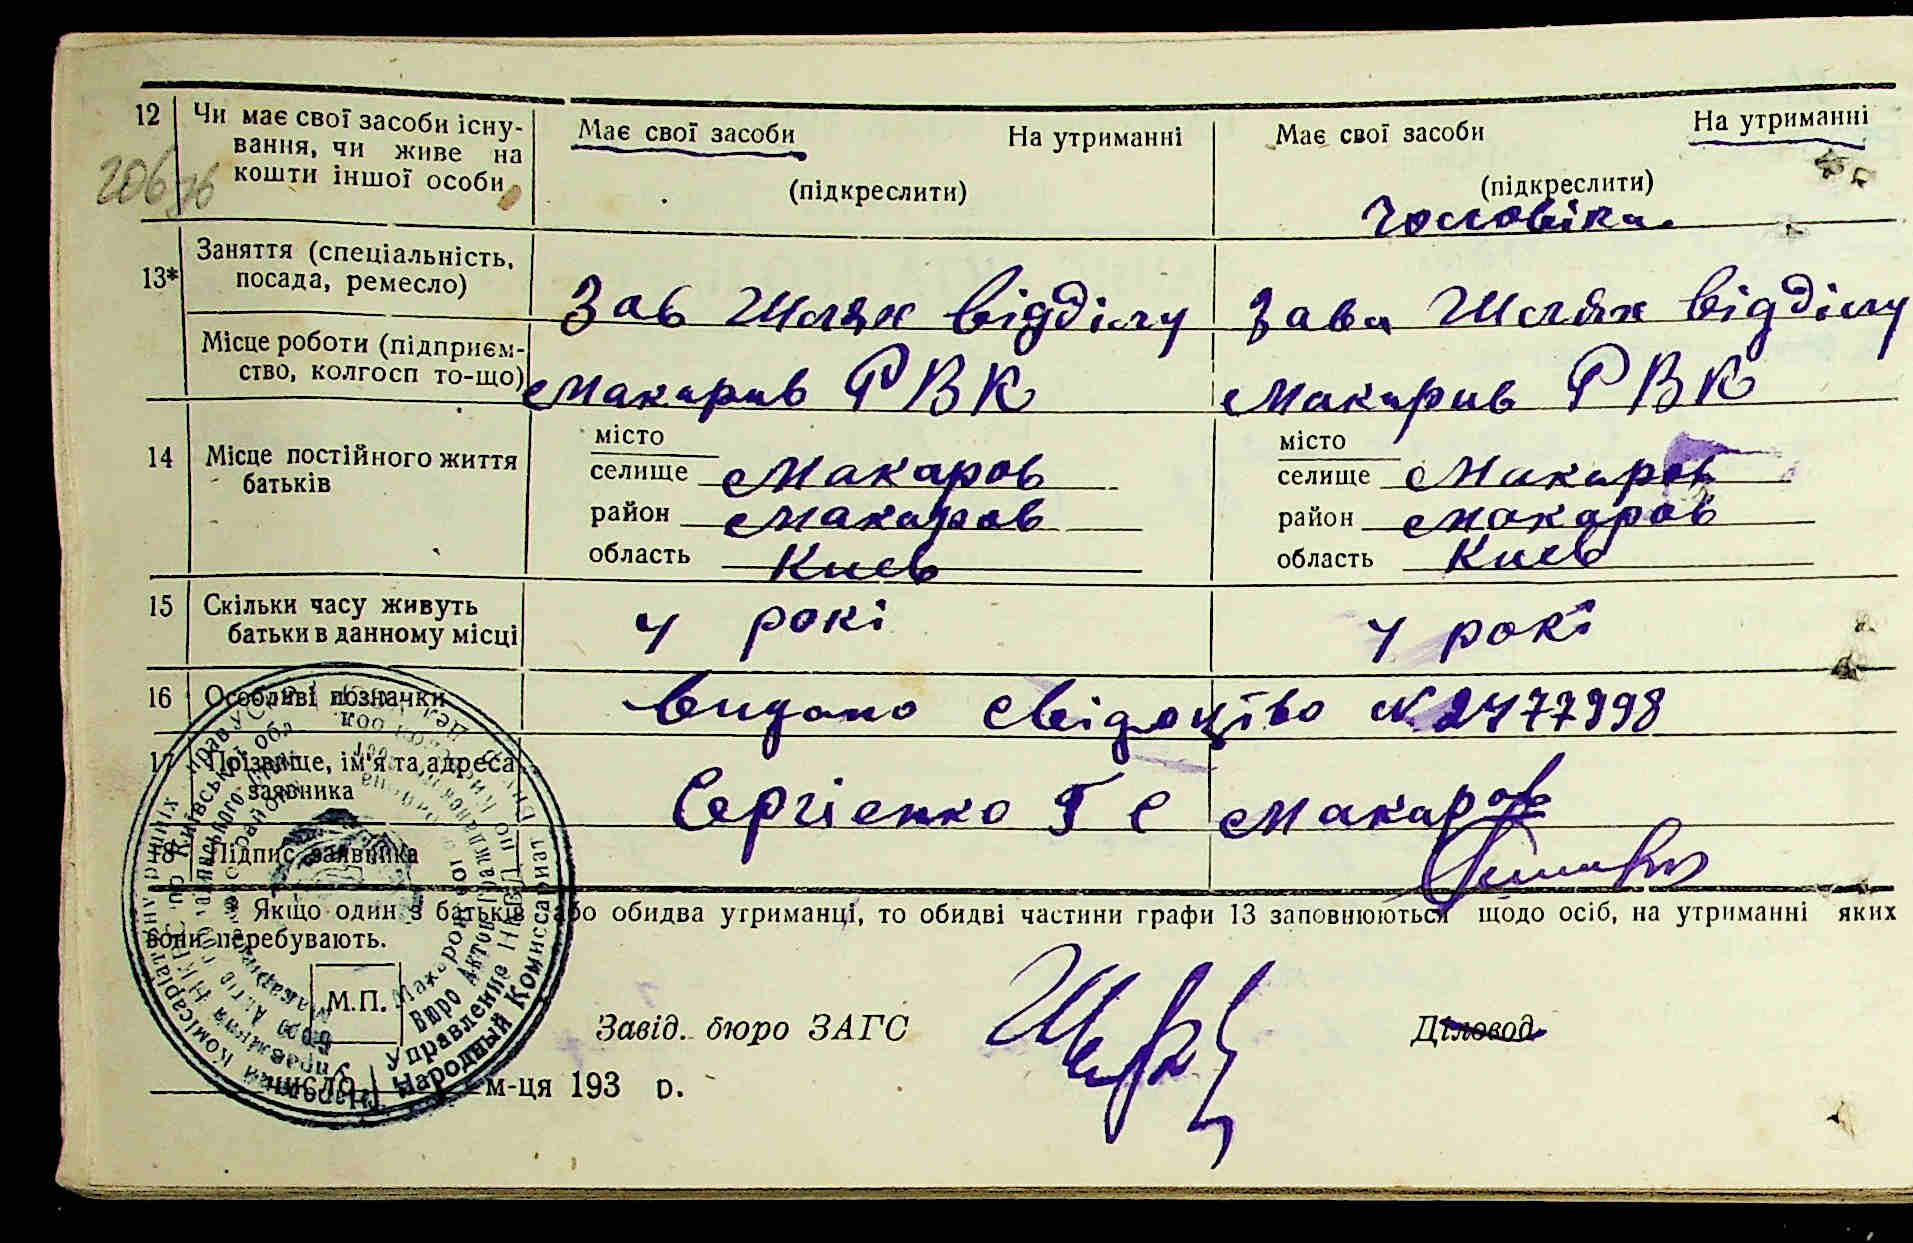 12 Чи має свої засоби існу- Має свої засоби На утриманні Має свої засоби На утриманні
вання, чи живе на
кошти іншої особи (підкреслити) (підкреслити)
206 чоловіка.
13* Заняття (спеціальність,
посада, ремесло) Зав Шлях відділу Зава Шлях відділу
Місце роботи (підприєм-
ство, колгосп то-що) Макарив РВК Макарив РВК
14 Місце постійного життя місто місто
батьків селище Макаров селище Макаров
район Макаров район Макаров
область Киев область Киев
15 Скільки часу живуть
батьки в данному місці 4 рокі 4 рокі
16 Особливі позначки Видано свідоцтво № 2477998
17 Прізвище, ім'я та адреса
заявника Сергієнко Г Є Макаров
18 Підпис заявника
Якщо один з батьків або обидва утриманці, то обидві частини графи 13 заповнюються щодо осіб, на утриманні яких
вони перебувають.
М.П.
Завід. бюро ЗАГС Діловод
число м-ця 193 р.
Народный Комиссариат
Управление НКВД по Киевской обл.
Бюро Актов Гражданского